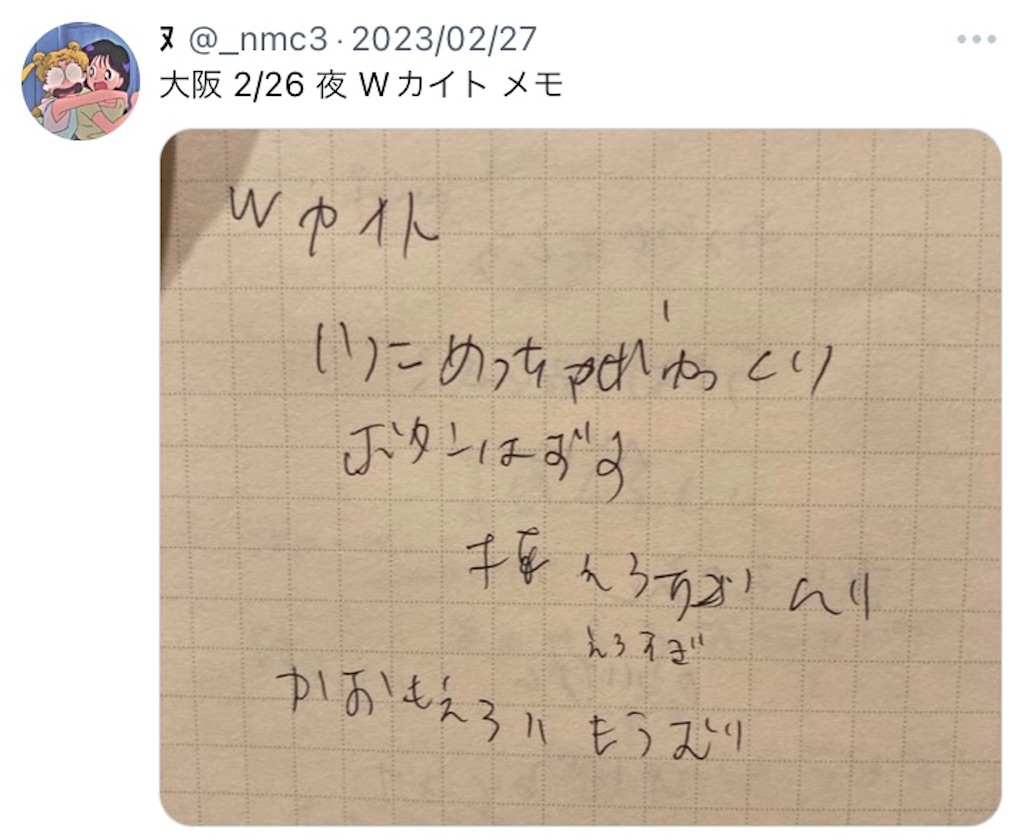 ヌ @_nmc3 · 2023/02/27
大阪 2/26 夜 Wカイト メモ
Wカイト
めっちゃ ゆっくり
ボタンはずす
えろすぎ
えろすぎ
かおもえろい もうむり